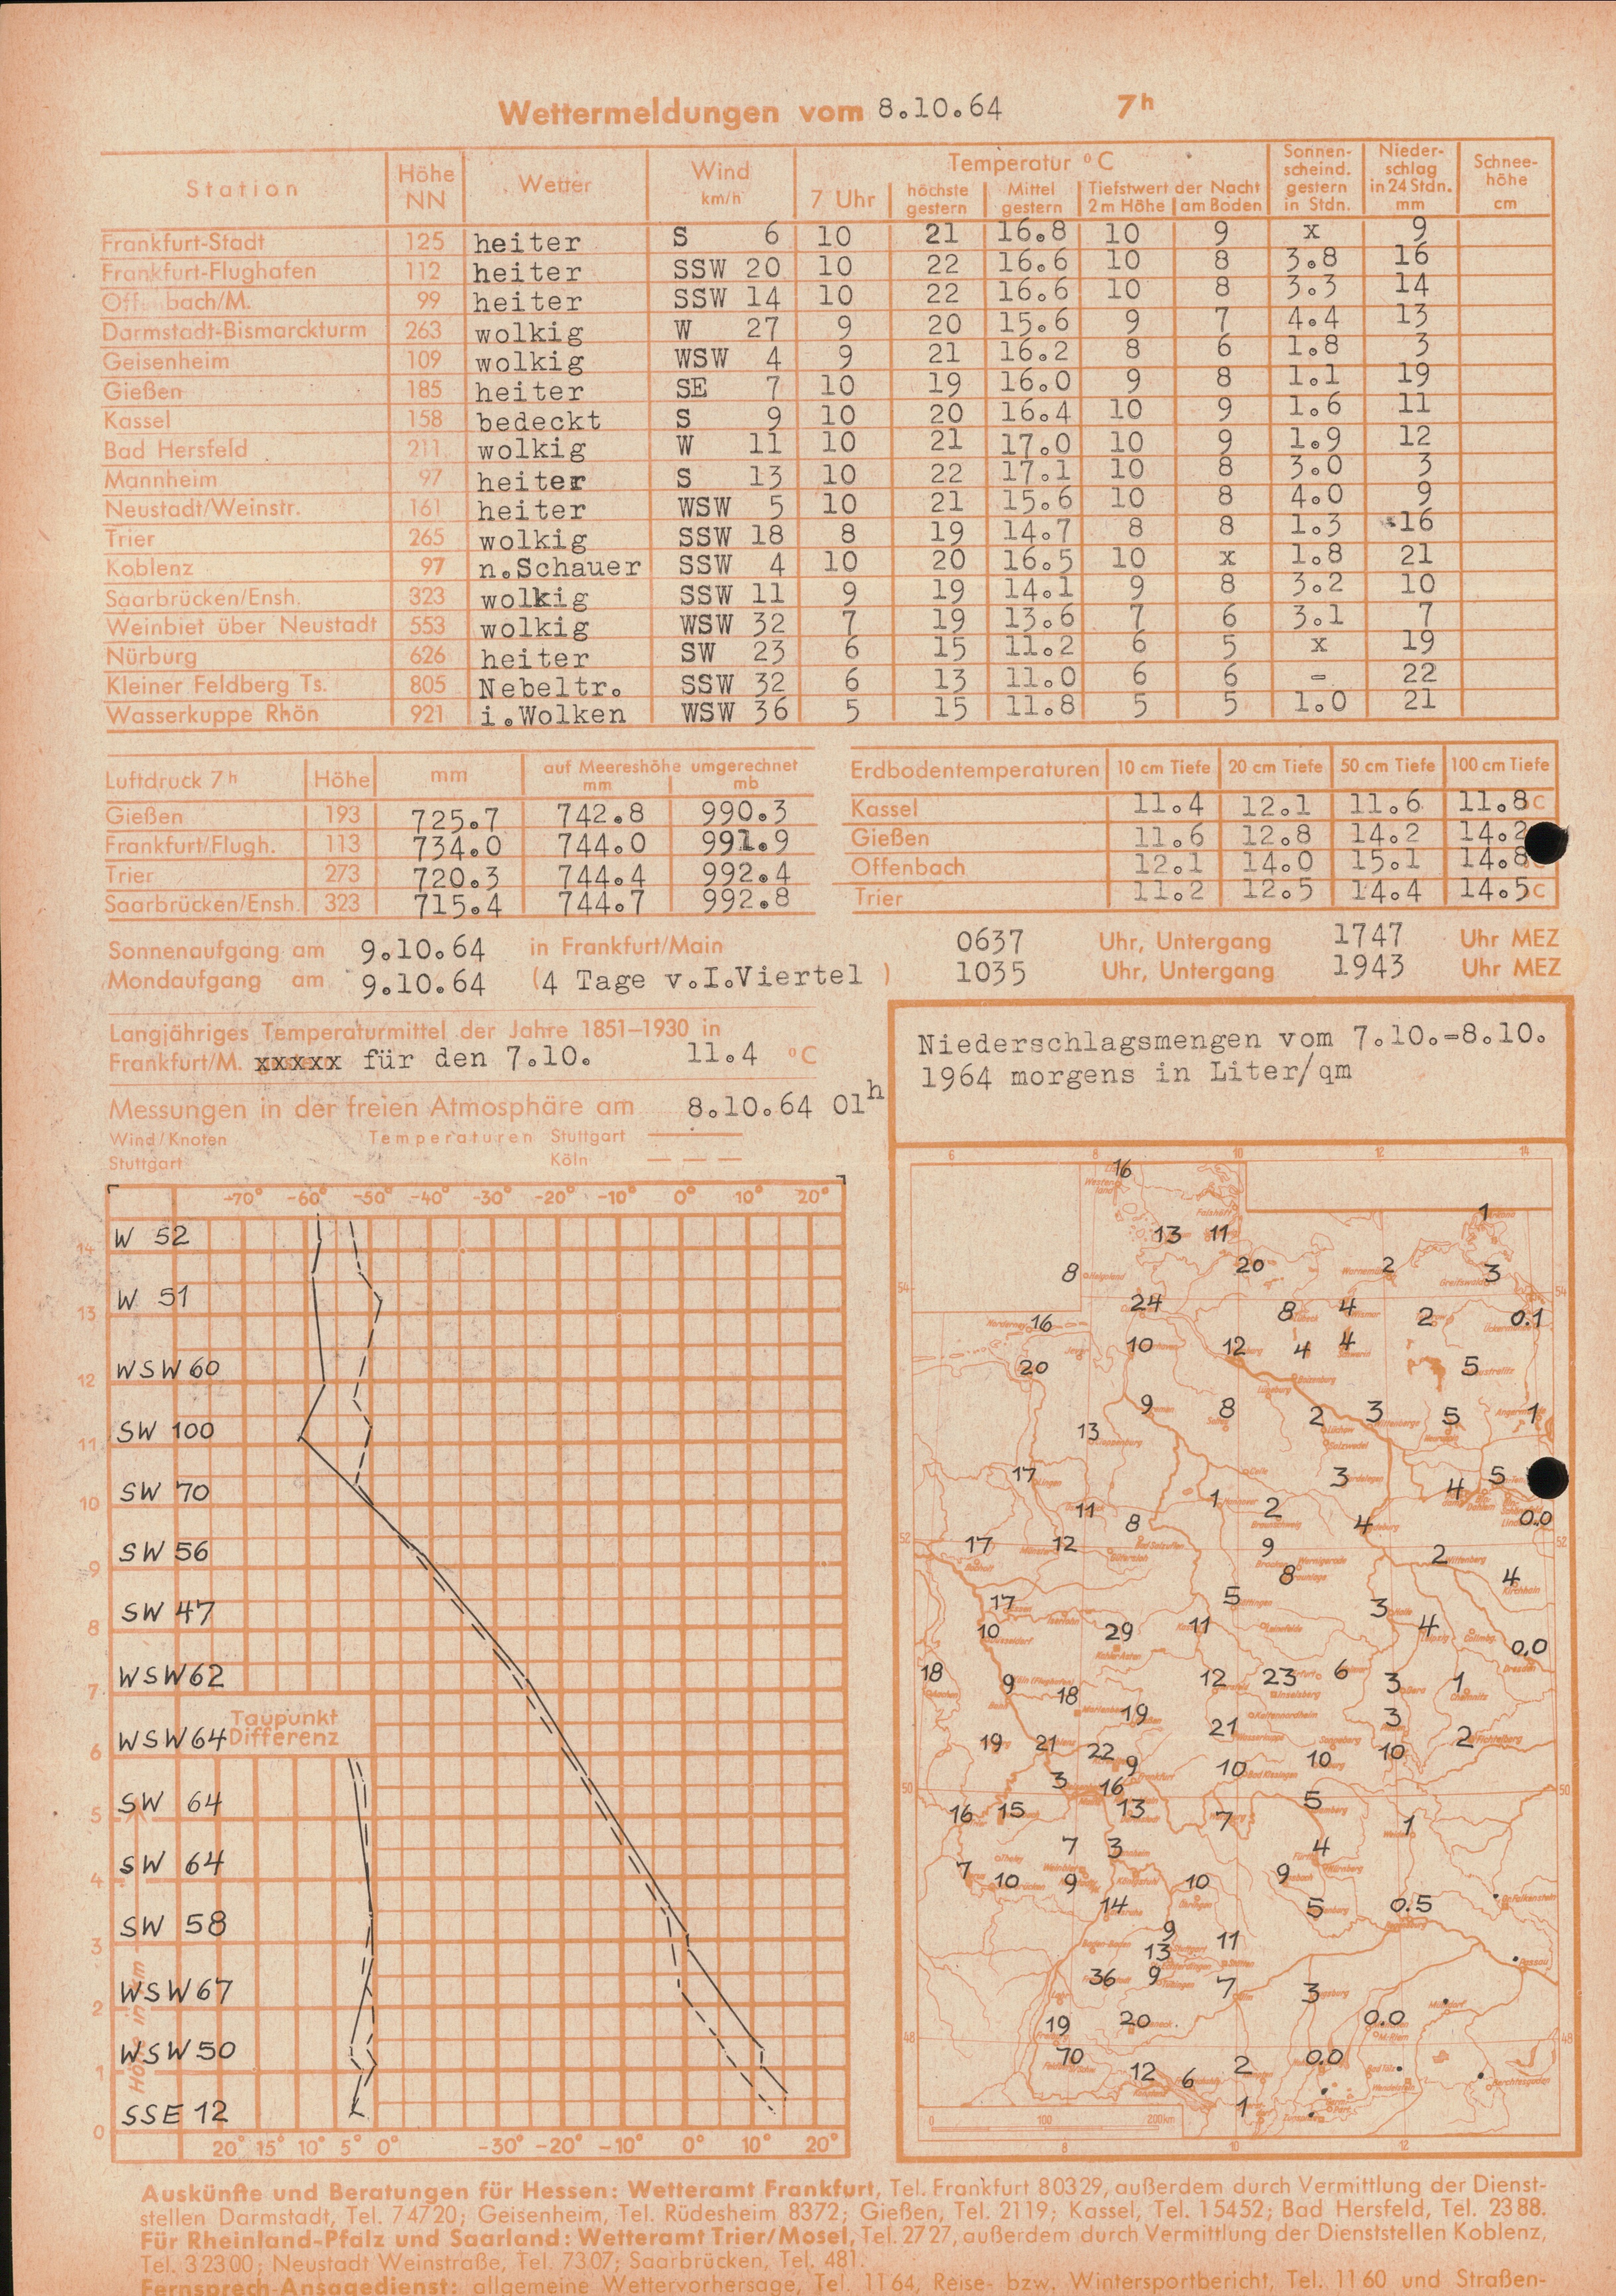 Wettermeldungen vom 8.10.64 7h
Station Höhe NN Wetter Wind km/h Temperatur °C Sonnen-scheind. gestern in Stdn. Nieder-schlag in 24 Stdn. mm Schnee-höhe cm
7 Uhr höchste gestern Mittel gestern Tiefstwert der Nacht 2 m Höhe am Boden
Frankfurt-Stadt 125 heiter S 6 10 21 16.8 10 9 x 9
Frankfurt-Flughafen 112 heiter SSW 20 10 22 16.6 10 8 3.8 16
Off bach/M. 99 heiter SSW 14 10 22 16.6 10 8 3.3 14
Darmstadt-Bismarckturm 263 wolkig W 27 9 20 15.6 9 7 4.4 13
Geisenheim 109 wolkig WSW 4 9 21 16.2 8 6 1.8 3
Gießen 185 heiter SE 7 10 19 16.0 9 8 1.1 19
Kassel 158 bedeckt S 9 10 20 16.4 10 9 1.6 11
Bad Hersfeld 211 wolkig W 11 10 21 17.0 10 9 1.9 12
Mannheim 97 heiter S 13 10 22 17.1 10 8 3.0 3
Neustadt/Weinstr. 161 heiter WSW 5 10 21 15.6 10 8 4.0 9
Trier 265 wolkig SSW 18 8 19 14.7 8 8 1.3 16
Koblenz 97 n.Schauer SSW 4 10 20 16.5 10 x 1.8 21
Saarbrücken/Ensh. 323 wolkig SSW 11 9 19 14.1 9 8 3.2 10
Weinbiet über Neustadt 553 wolkig WSW 32 7 19 13.6 7 6 3.1 7
Nürburg 626 heiter SW 23 6 15 11.2 6 5 x 19
Kleiner Feldberg Ts. 805 Nebeltr. SSW 32 6 13 11.0 6 6 - 22
Wasserkuppe Rhön 921 i.Wolken WSW 36 5 15 11.8 5 5 1.0 21
Luftdruck 7h Höhe mm auf Meereshöhe umgerechnet mm mb
Gießen 193 725.7 742.8 990.3
Frankfurt/Flugh. 113 734.0 744.0 991.9
Trier 273 720.3 744.4 992.4
Saarbrücken/Ensh. 323 715.4 744.7 992.8
Erdbodentemperaturen 10 cm Tiefe 20 cm Tiefe 50 cm Tiefe 100 cm Tiefe
Kassel 11.4 12.1 11.6 11.8 C
Gießen 11.6 12.8 14.2 14.2
Offenbach 12.1 14.0 15.1 14.8
Trier 11.2 12.5 14.4 14.5 C
Sonnenaufgang am 9.10.64 in Frankfurt/Main 0637 Uhr, Untergang 1747 Uhr MEZ
Mondaufgang am 9.10.64 (4 Tage v.I.Viertel ) 1035 Uhr, Untergang 1943 Uhr MEZ
Langjähriges Temperaturmittel der Jahre 1851–1930 in
Frankfurt/M. xxxxx für den 7.10. 11.4 °C
Messungen in der freien Atmosphäre am 8.10.64 01h
Wind/Knoten Temperaturen Stuttgart
Stuttgart Köln
-70° -60° -50° -40° -30° -20° -10° 0° 10° 20°
14 W 52
13 W 51
12 WSW 60
11 SW 100
10 SW 70
9 SW 56
8 SW 47
7 WSW 62
Taupunkt
6 WSW 64 Differenz
5 SW 64
4 SW 64
3 SW 58
2 WSW 67
1 WSW 50
0 SSE 12
Höhe in km
20° 15° 10° 5° 0° -30° -20° -10° 0° 10° 20°
Niederschlagsmengen vom 7.10.-8.10.
1964 morgens in Liter/qm
6 8 10 12 14
16
1
13 11
8 20 2 3
54 54
24 8 4 2 0.1
16
10 12 4 4
20 5
9 8 2 3 5 1
13
17 3 4 5
11 1 2
8 4 0.0
52 52
17 12 9 2
8 4
17 5 3
10 29 11 4
0.0
18 9 12 23 6 3 1
18
19 21 3
19 21 22 10 2
9 10 10
3 16 50 50
16 15 13 7 5 1
7 3 4
7 10 9 10 9
14 5 0.5
9 11
13
36 9 7 3
19 20 0.0
48 48
70 12 6 2 0.0
1
0 100 200km
8 10 12
Auskünfte und Beratungen für Hessen: Wetteramt Frankfurt, Tel. Frankfurt 80329, außerdem durch Vermittlung der Dienst-
stellen Darmstadt, Tel. 74720; Geisenheim, Tel. Rüdesheim 8372; Gießen, Tel. 2119; Kassel, Tel. 15452; Bad Hersfeld, Tel. 2388.
Für Rheinland-Pfalz und Saarland: Wetteramt Trier/Mosel, Tel. 2727, außerdem durch Vermittlung der Dienststellen Koblenz,
Tel. 32300; Neustadt Weinstraße, Tel. 7307; Saarbrücken, Tel. 481.
Fernsprech-Ansagedienst: allgemeine Wettervorhersage, Tel 1164, Reise- bzw. Wintersportbericht, Tel. 1160 und Straßen-